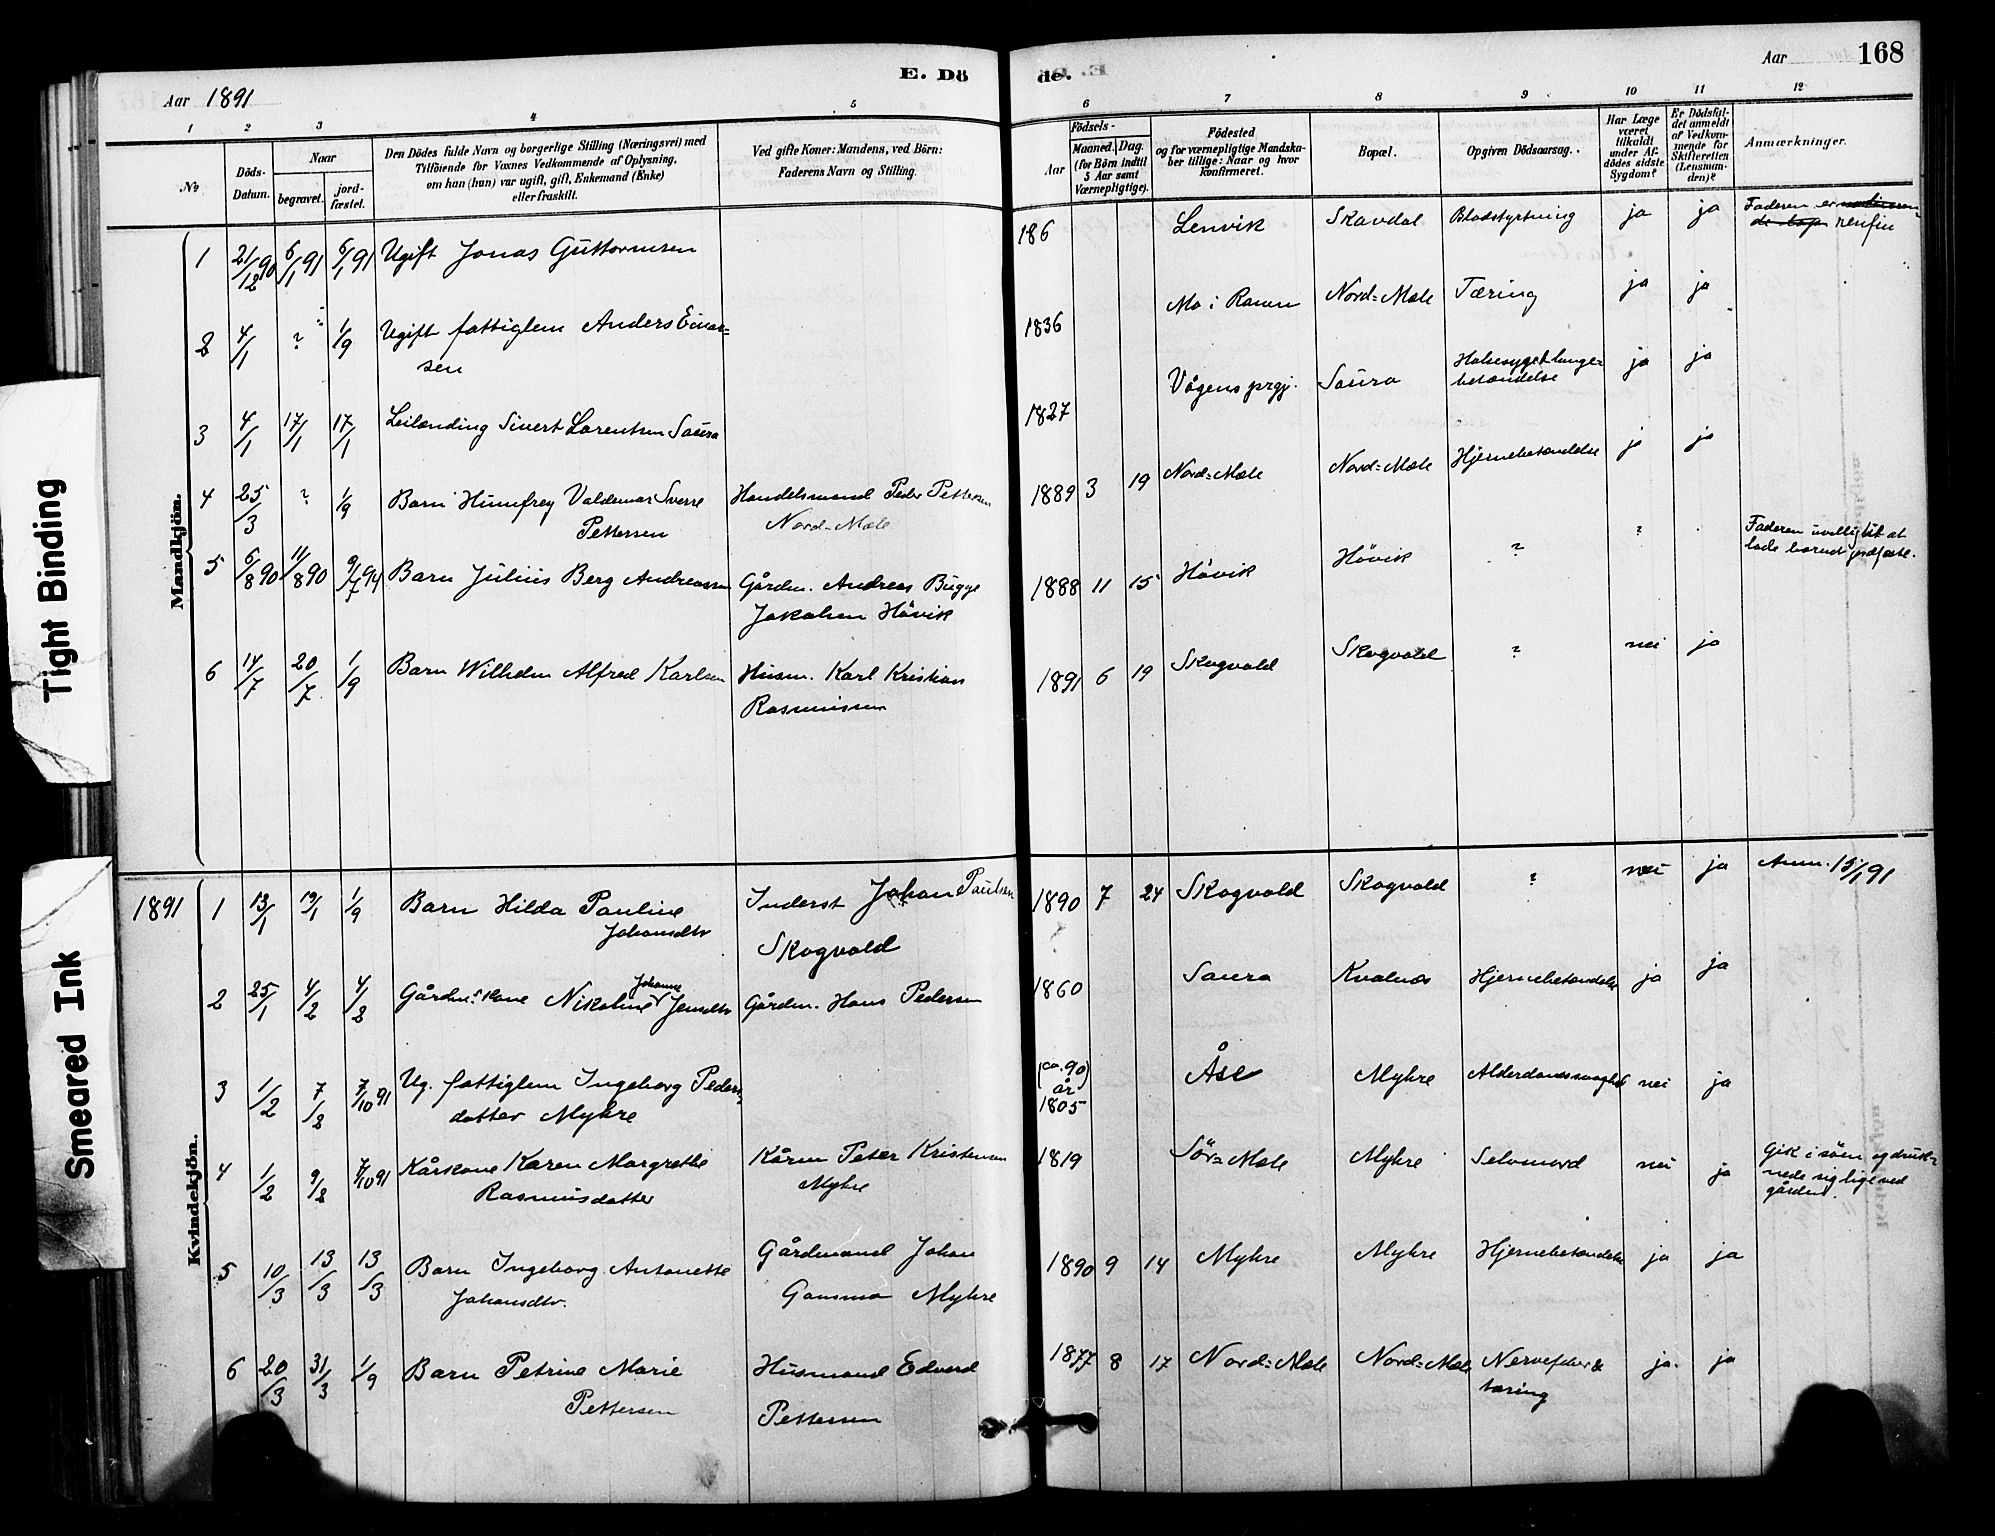 Tight Binding
Smeared Ink
E. Dö
de.
Aar 168
Aar 1891
1 2 3 4 5
6 7 8 9 10 11 12
№
Döds-
Datum.
Naar
begravet.
jord-
fæstet.
Den Dödes fulde Navn og borgerlige Stilling (Næringsvei) med
Tilföiende for Voxnes Vedkommende af Oplysning,
om han (hun) var ugift, gift, Enkemand (Enke)
eller fraskilt.
Ved gifte Koner: Mandens, ved Börn:
Faderens Navn og Stilling.
Födsels-
Aar
Maaned. Dag.
(for Börn indtil
5 Aar samt
Værnepligtige).
Födested
og for værnepligtige Mandska-
ber tillige: Naar og hvor
konfirmeret.
Bopæl.
Opgiven Dödsaarsag.
Har Læge
været
tilkaldt
under Af-
dödes sidste
Sygdom?
Er Dödsfal-
det anmeldt
af Vedkom-
mende for
Skifteretten
(Lensman-
den)?
Anmærkninger.
Mandkjön.
1 21/12 90 6/1 91 6/1 91 Ugift Jonas Guttormsen 186 Lenvik Skavdal Blodstyrtning ja ja Faderen er
2 4/1 ? 1/9 Ugift fattiglem Anders Einar=
sen 1836 Mo i Ranen Nord=Mele Tæring ja ja
3 4/1 17/1 17/1 Leilending Sivert Lorentsen Saura 1827 Vågens prgj. Saura Halsesyge & lunge=
betændelse ja ja
4 25/3 ? 1/9 Barn Humfrey Valdemar Sverre
Pettersen Handelsmand Peder Pettersen
Nord-Mele 1889 3 19 Nord=Mele Nord=Mele Hjernebetændelse ja ja
5 6/8 90 11/8 90 9/7 94 Barn Julius Berg Andreassen Gårdm. Andreas Bugge
Jakobsen Hövik 1888 11 15 Hövik Hövik ? ? Faderen uvillig til at
lade barnet jordfæste.
6 14/7 20/7 1/9 Barn Wilhelm Alfred Karlsen Husm. Karl Kristian
Rasmussen 1891 6 19 Skogvold Skogvold ? nei ja
Kvindekjön.
1891 1 13/1 19/1 1/9 Barn Hilda Pauline
Johansdtr Inderst Johan Paulsen
Skogvold 1890 7 24 Skogvold Skogvold ? nei ja Anm. 15/1 91
2 25/1 4/2 4/2 Gårdm.s kone Nikoline Johanna Jensdtr Gårdm. Hans Pedersen 1860 Saura Kvalnes Hjernebetændelse ja ja
3 1/2 7/2 7/10 91 Ug. fattiglem Ingeborg Peders=
datter Myhre (ca. 90)
år
1805 Åse Myhre Alderdomssvaghed nei ja
4 1/2 9/2 7/10 91 Kårkone Karen Margrethe
Rasmusdatter Kårm Peter Kristensen
Myhre 1819 Sör=Mele Myhre Selvmord nei ja Gik i söen og druk=
nede sig lige ved
gården.
5 10/3 13/3 13/3 Barn Ingeborg Antonette
Johansdtr. Gårdmand Johan
Gamma Myhre 1890 9 14 Myhre Myhre Hjernebetændelse ja ja
6 20/3 31/3 1/9 Barn Petrine Marie
Pettersen Husmand Edvard
Pettersen 1877 8 17 Nord=Mele Nord=Mele Nervefeber &
tæring ja. ja